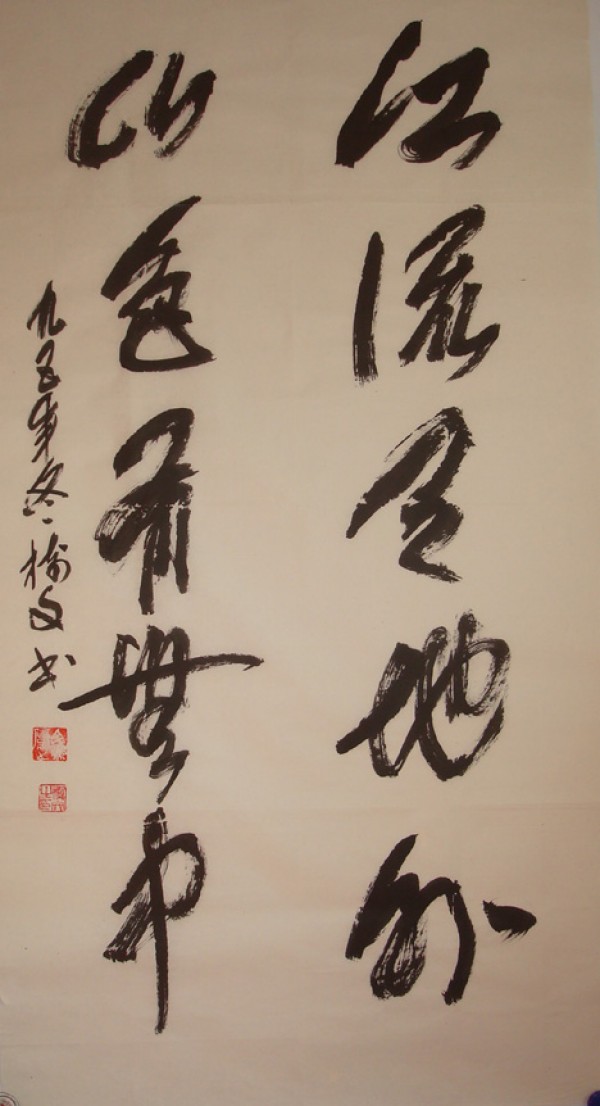 江流天地外
山色有无中
九五年冬楠文书